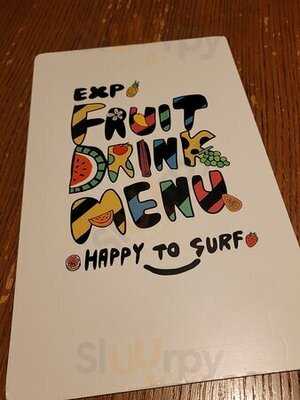 EXP
FRUIT
DRINK
MENU
HAPPY TO SURF
Sluurpy